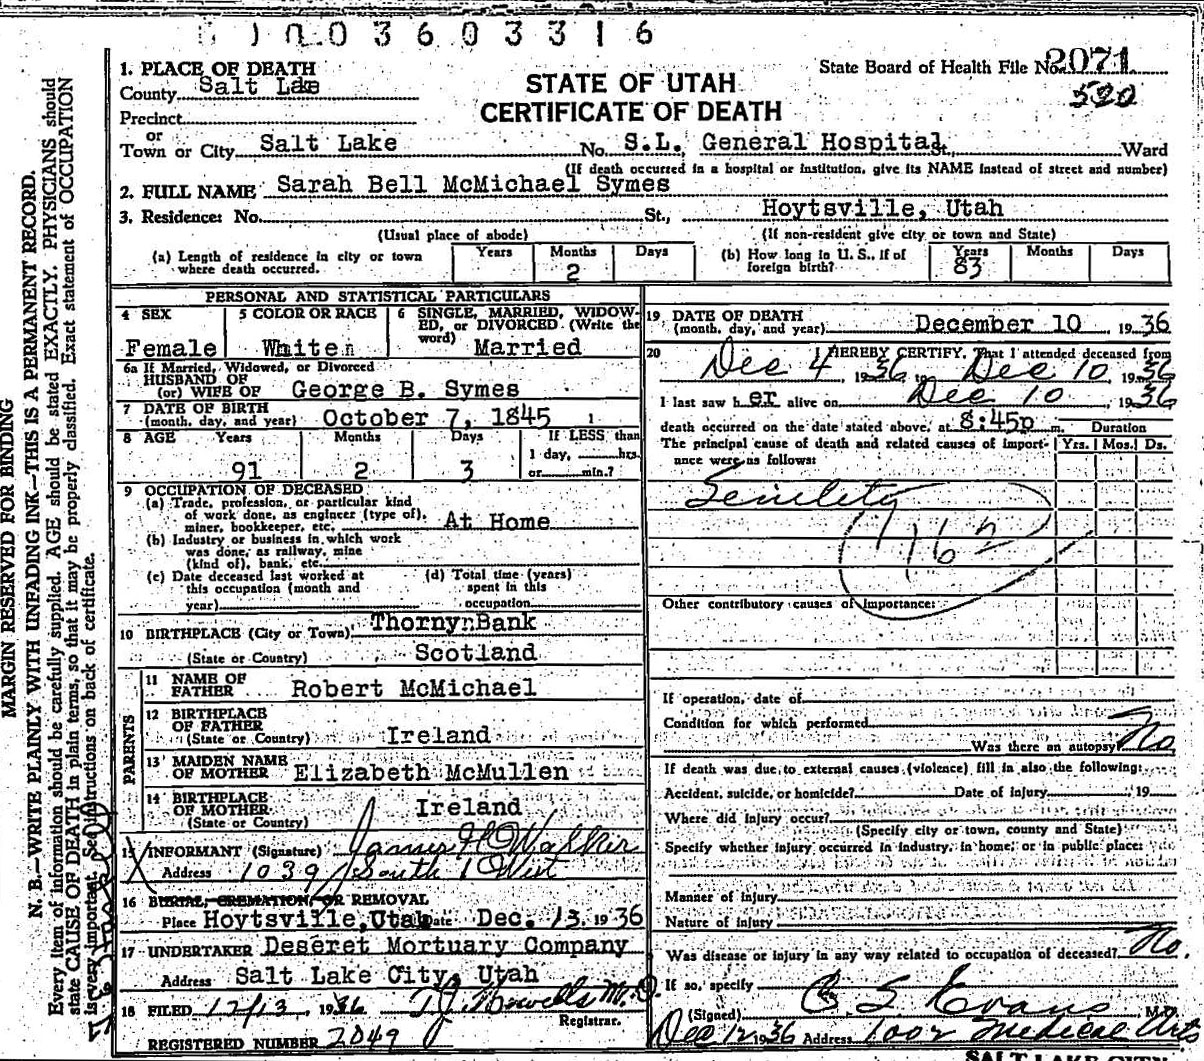 0 3 6 0 3 3 1 6
1. PLACE OF DEATH
County Salt Lake
Precinct
or
Town or City Salt Lake No. S.L. General Hospital St., Ward
(If death occurred in a hospital or institution, give its NAME instead of street and number)
STATE OF UTAH
CERTIFICATE OF DEATH
State Board of Health File No. 2071
520
2. FULL NAME Sarah Bell McMichael Symes
3. Residence: No. St., Hoytsville, Utah
(Usual place of abode) (If non-resident give city or town and State)
(a) Length of residence in city or town where death occurred. Years Months 2 Days
(b) How long in U. S., if of foreign birth? Years 83 Months Days
PERSONAL AND STATISTICAL PARTICULARS
4 SEX Female
5 COLOR OR RACE White
6 SINGLE, MARRIED, WIDOWED, or DIVORCED (Write the word) Married
6a If Married, Widowed, or Divorced
HUSBAND OF
(or) WIFE OF George B. Symes
7 DATE OF BIRTH
(month, day, and year) October 7, 1845
8 AGE Years 91 Months 2 Days 3 If LESS than 1 day, hrs. or min.?
9 OCCUPATION OF DECEASED
(a) Trade, profession, or particular kind
of work done, as engineer (type of),
miner, bookkeeper, etc. At Home
(b) Industry or business in which work
was done, as railway, mine
(kind of), bank, etc.
(c) Date deceased last worked at
this occupation (month and
year)
(d) Total time (years)
spent in this
occupation
10 BIRTHPLACE (City or Town) Thorny Bank
(State or Country) Scotland
PARENTS
11 NAME OF
FATHER Robert McMichael
12 BIRTHPLACE
OF FATHER
(State or Country) Ireland
13 MAIDEN NAME
OF MOTHER Elizabeth McMullen
14 BIRTHPLACE
OF MOTHER
(State or Country) Ireland
15 INFORMANT (Signature) James H Walker
Address 1039 South 1 West
16 BURIAL, CREMATION, OR REMOVAL
Place Hoytsville, Utah Date Dec. 13, 1936
17 UNDERTAKER Deseret Mortuary Company
Address Salt Lake City, Utah
18 FILED 12/13 1936 T.J. Howells M.D.
Registrar.
REGISTERED NUMBER 2049
19 DATE OF DEATH
(month, day, and year) December 10, 1936
20 I HEREBY CERTIFY, That I attended deceased from
Dec 4, 1936 to Dec 10, 1936
I last saw her alive on Dec 10, 1936
death occurred on the date stated above, at 8:45p m. Duration
The principal cause of death and related causes of importance were as follows: Yrs. Mos. Ds.
Senility
162
Other contributory causes of importance:
If operation, date of
Condition for which performed
Was there an autopsy No
If death was due to external causes (violence) fill in also the following:
Accident, suicide, or homicide? Date of injury , 19
Where did injury occur?
(Specify city or town, county and State)
Specify whether injury occurred in industry, in home, or in public place:
Manner of injury
Nature of injury
Was disease or injury in any way related to occupation of deceased? No.
If so, specify
(Signed) C S Evans M.D.
Dec 12 1936 Address 1002 Medical Arts
SALT LAKE CITY
MARGIN RESERVED FOR BINDING
N. B.—WRITE PLAINLY WITH UNFADING INK—THIS IS A PERMANENT RECORD.
Every item of information should be carefully supplied. AGE should be stated EXACTLY. PHYSICIANS should
state CAUSE OF DEATH in plain terms, so that it may be properly classified. Exact statement of OCCUPATION
is very important. See instructions on back of certificate.